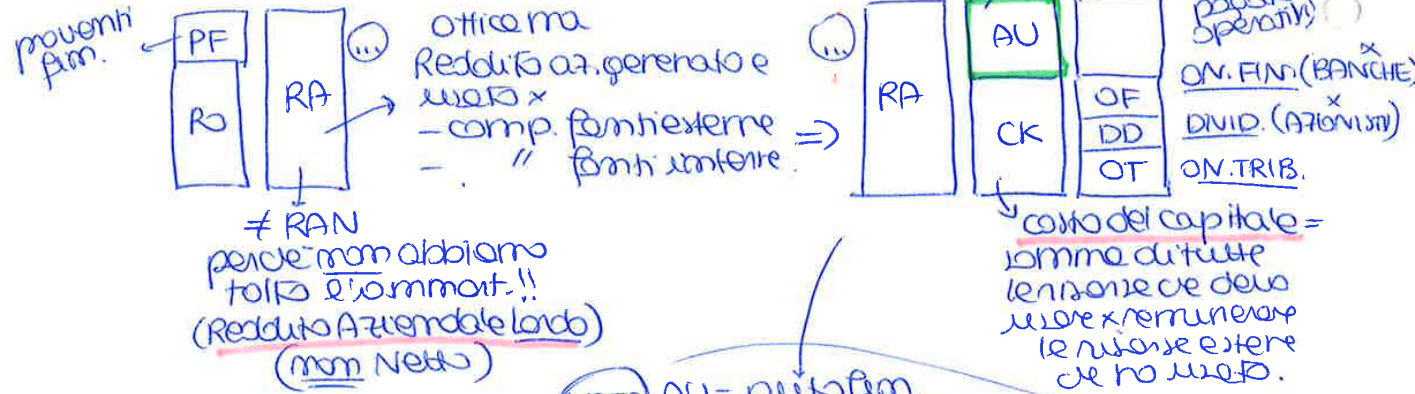 proventi
fin.
PF
RO
RA
(...)
Ottica ma
Reddito az. generato e
usato x
- comp. fonti esterne
- " fonti interne.
=>
≠ RAN
perchè non abbiamo
tolto l'ammort.!!
(Reddito Aziendale Lordo)
(non Netto)
(...)
RA
AU
CK
OF
DD
OT
operativi
ON. FIN. (BANCHE)
x
DIVID. (AZIONISTI)
x
ON. TRIB.
costo del capitale =
somma di tutte
le risorse che devo
usare x remunerare
le risorse esterne
che ho usato.
AU =